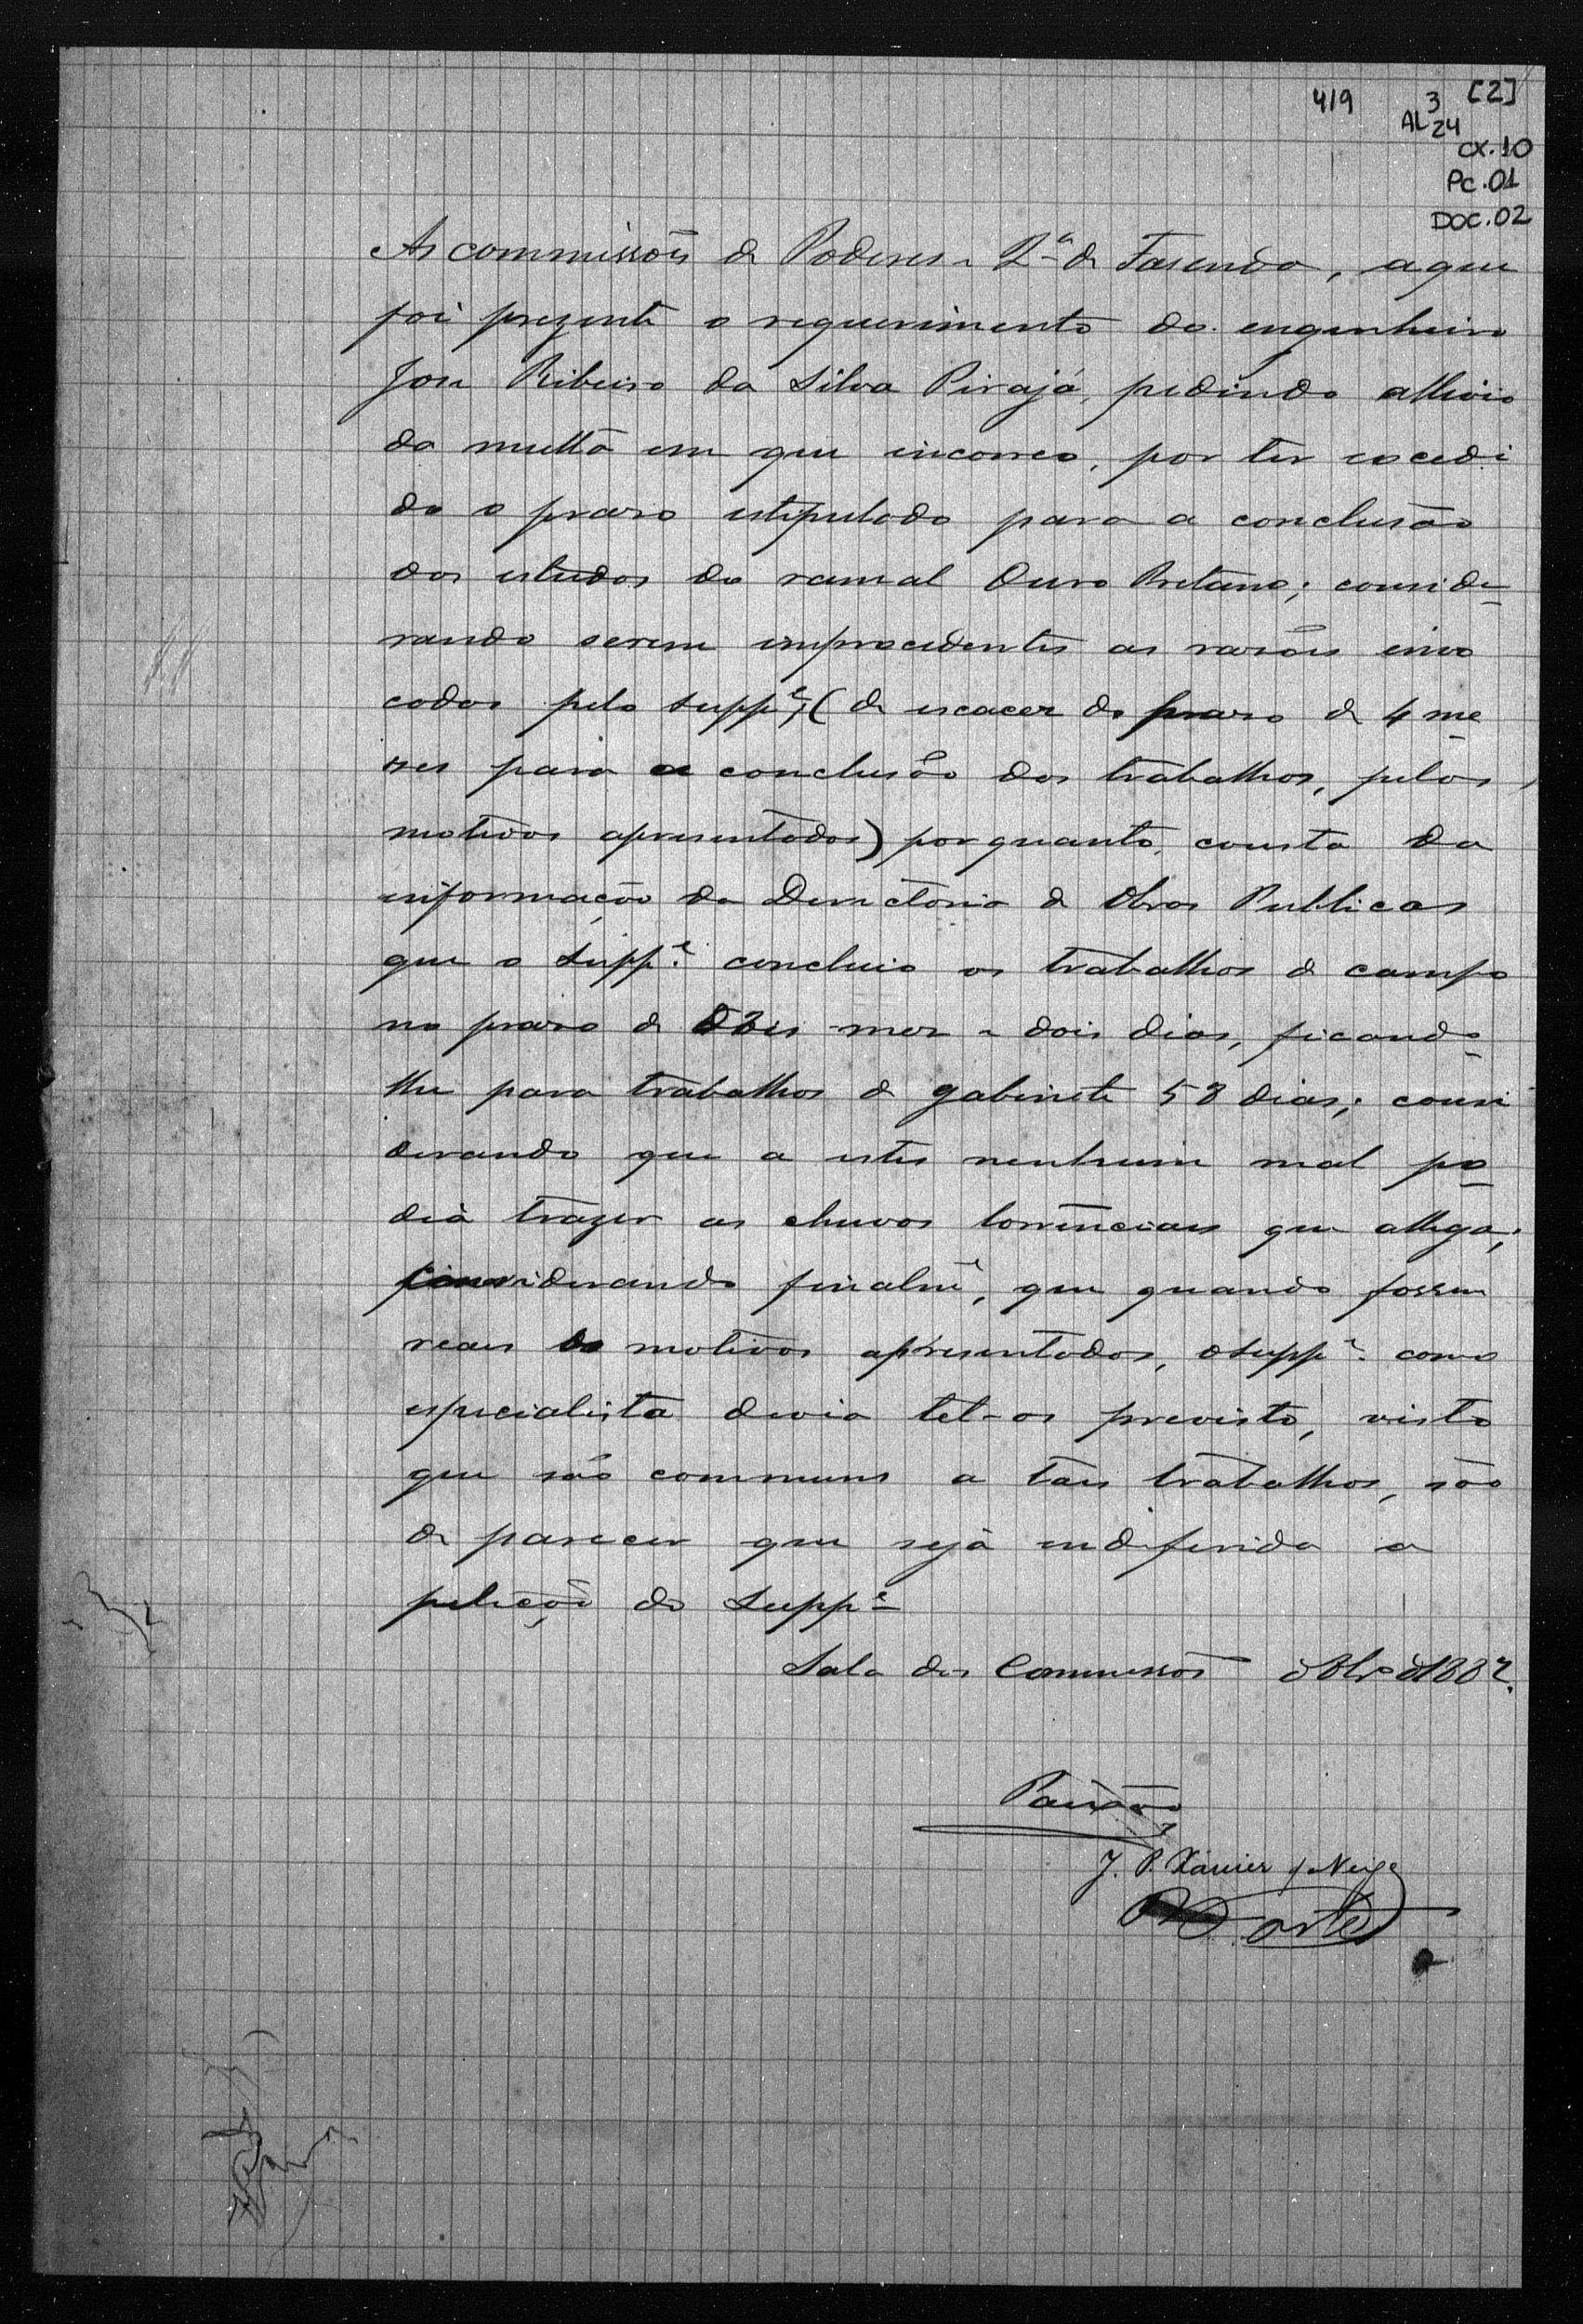 419 3 [2]
AL 24
CX.10
PC.01
DOC.02
As commissões de Poderes e 2ª de Fasenda, a que
foi prezente o requerimento do engenheiro
José Ribeiro da Silva Pirajá, pedindo allivio
da multa em que incorreo, por ter excedi
do o praso estipulado para a conclusão
dos estudos do ramal Ouro Pretano; conside-
rando serem improcedentes as rasões invo
cadas pelo suppe; (de escacez do praso de 4 me
ses para a conclusão dos trabalhos, pelos
motivos apresentados) por quanto, consta da
informação da Directoria de Obras Publicas
que o Suppe. concluio os trabalhos de campo
no praso de dois mez e dois dias, ficando-
lhe para trabalhos de gabinete 58 dias; consi
derando que a estes nenhum mal po-
dia trazer as chuvas torrenciaes que allega;
considerando finalme, que quando fossem
reaes os motivos apresentados, o suppe. como
especialista devia tel-os previsto, visto
que são communs a taes trabalhos, são
de parecer que seja indeferida a
petição do Suppe
Sala das Commissões 8bro de 1887.
Paixão
J. P. Xavier da Veiga